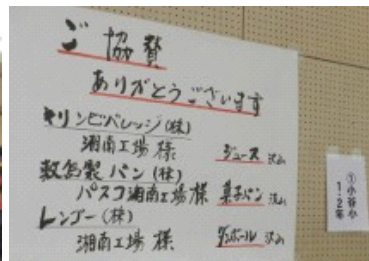 ご協賛
ありがとうございます
キリンビバレッジ(株)
湘南工場様 ジュース 沢山
敷島製パン(株)
パスコ湘南工場様 菓子パン 沢山
レンゴー(株)
湘南工場様 ダンボール 沢山
①小谷小
1・2年